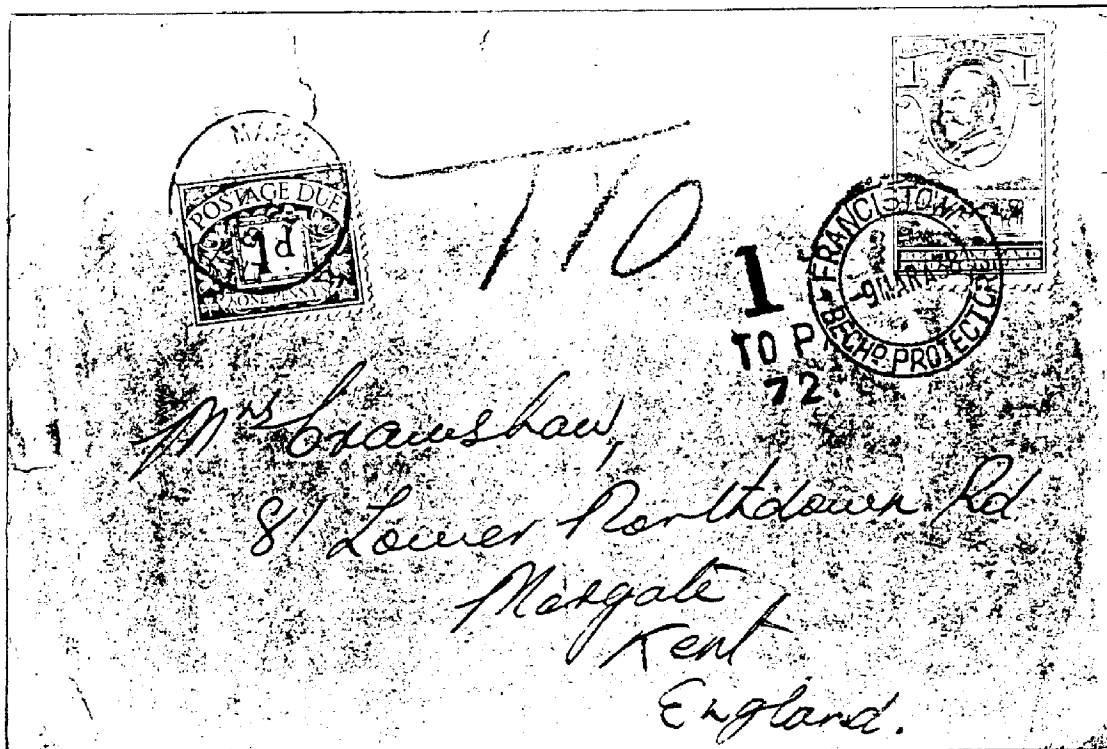 MARG
POSTAGE DUE
1d
ONE PENNY
T 10
1 1
FRANCISTOWN
9 MAR 3
BECHD PROTECTOR
1
TO P
72
Mrs Crawshaw,
81 Lower Northdown Rd
Margate
Kent
England.